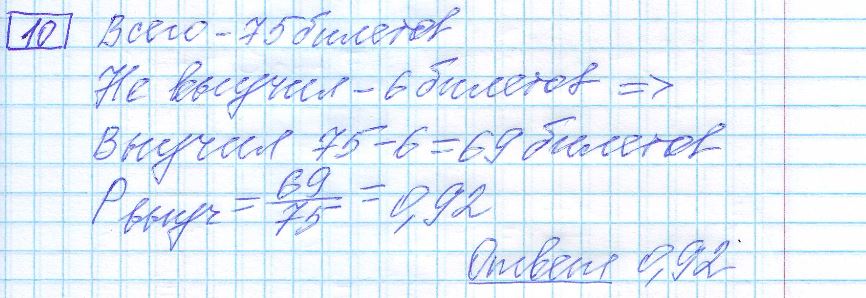 10 Всего - 75 билетов
Не выучил - 6 билетов =>
Выучил 75-6=69 билетов
Pвыуч = 69/75 = 0,92
Ответ 0,92